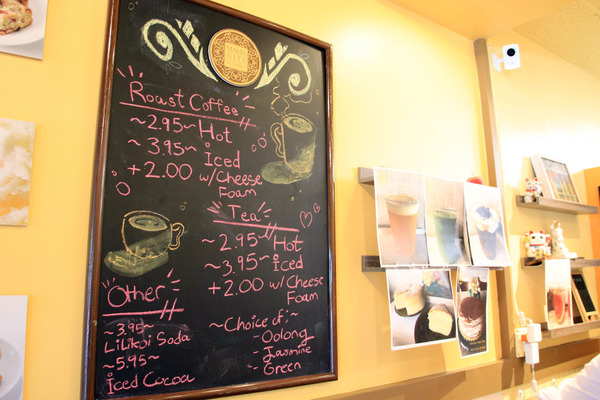 Roast Coffee
~2.95~ Hot
~3.95~ Iced
+2.00 w/Cheese
Foam
Tea
~2.95~ Hot
~3.95~ Iced
+2.00 w/Cheese
Foam
~Choice of:~
- Oolong
- Jasmine
- Green
Other
~3.95~
Lilikoi Soda
~5.95~
Iced Cocoa